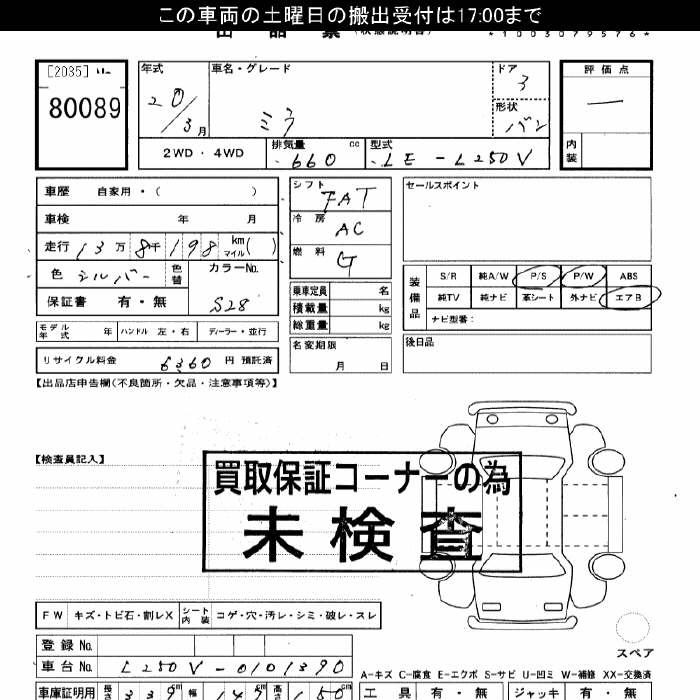 この車両の土曜日の搬出受付は17:00まで
*1003079576*
[2035]
80089
年式
20/3月
車名・グレード
ミラ
ドア
3
形状
バン
評価点
一
内装
2WD・4WD
排気量 cc
660
型式
LE-L250V
車歴 自家用・( )
車検 年 月
走行 13万8千198 km マイル( )
色 シルバー 色替
カラーNo.
S28
保証書 有・無
モデル年式 年 ハンドル 左・右 ディーラー・並行
リサイクル料金 6360 円 預託済
シフト FAT
冷房 AC
燃料 G
乗車定員 名
積載量 kg
総重量 kg
名変期限
月 日
セールスポイント
装備品
S/R 純A/W P/S P/W ABS
純TV 純ナビ 革シート 外ナビ エアB
ナビ型番:
後日品
【出品店申告欄(不良箇所・欠品・注意事項等)】
【検査員記入】
買取保証コーナーの為
未検査
FW キズ・トビ石・割レX シート内装 コゲ・穴・汚レ・シミ・破レ・スレ
スペア
登録No.
車台No. L250V-0101390
A-キズ C-腐食 E-エクボ S-サビ U-凹ミ W-補修 XX-交換済
車庫証明用 長さ 339cm 幅 147cm 高さ 150cm
工具 有・無 ジャッキ 有・無